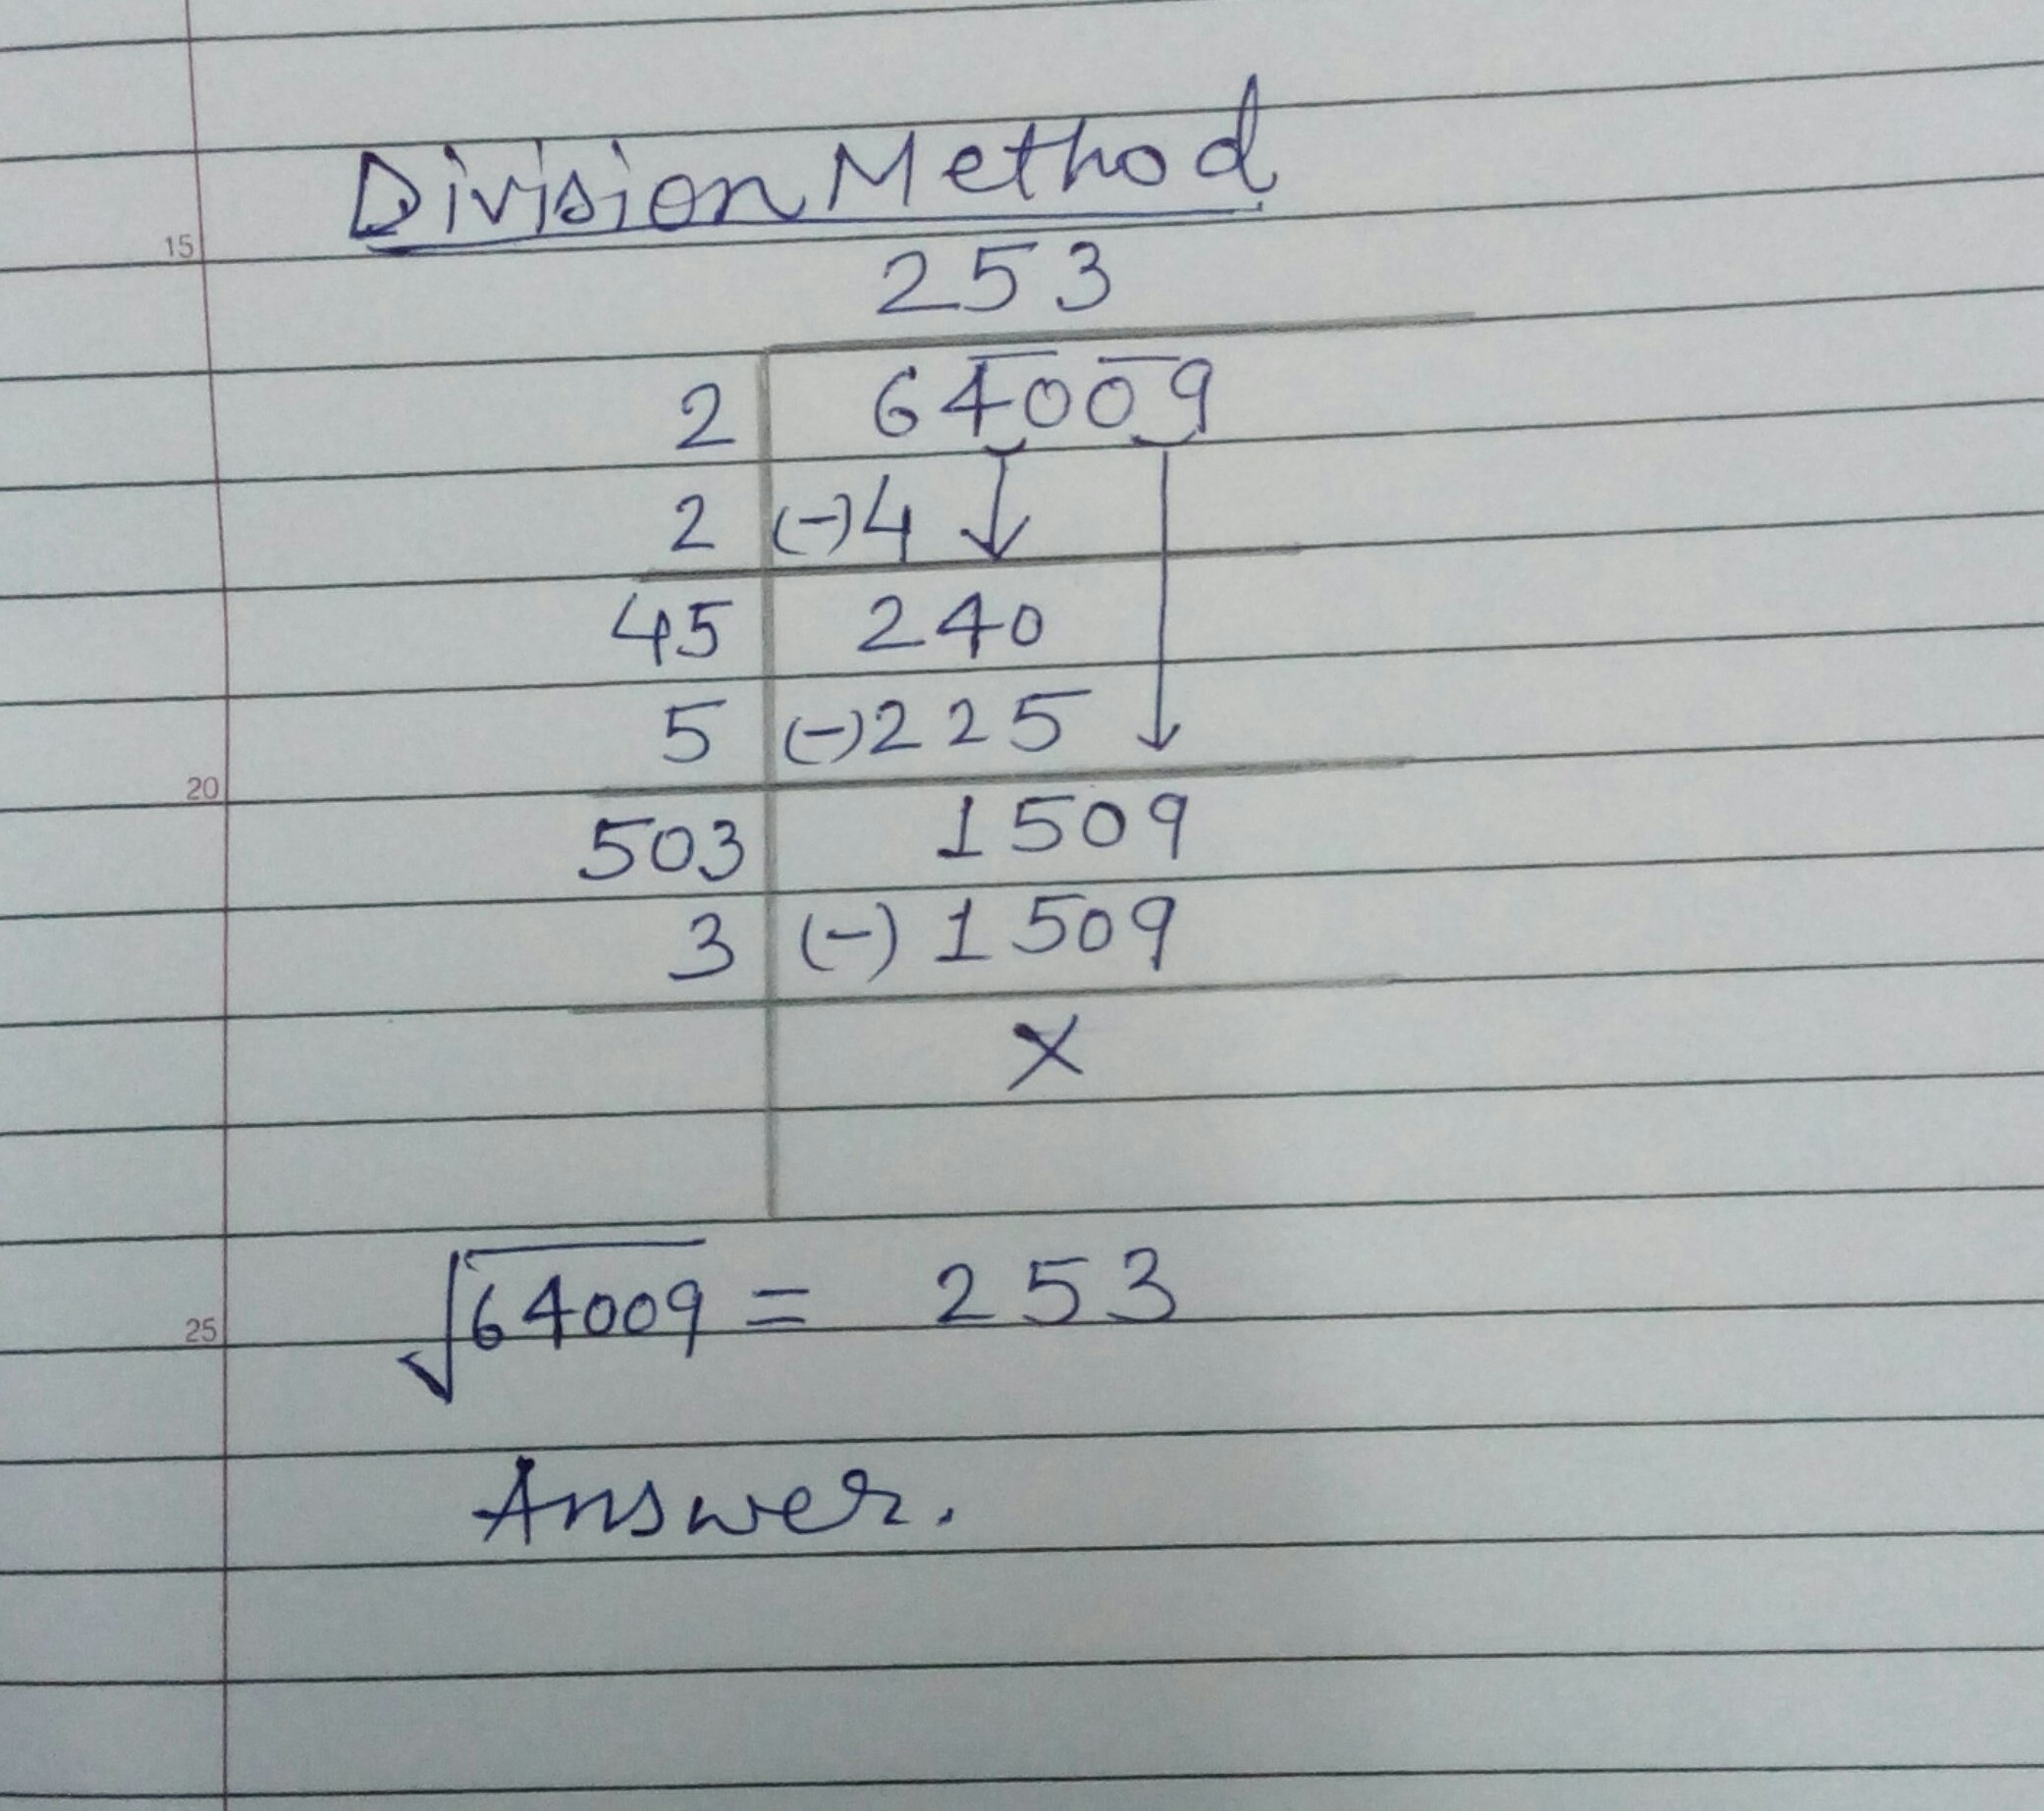 Division Method
15
253
2 64009
2 (-)4
45 240
5 (-)225
20
503 1509
3 (-) 1509
X
√64009 = 253
25
Answer.